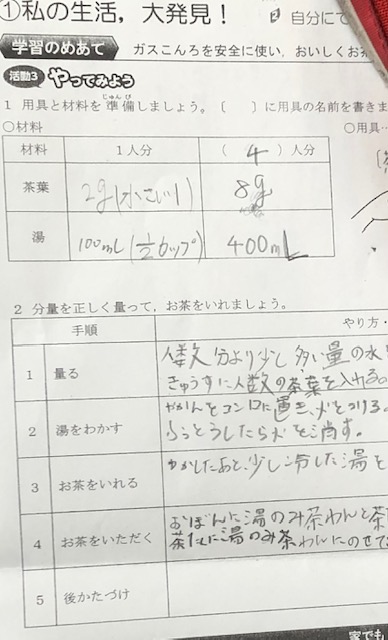 ①私の生活，大発見！
② 自分にで
学習のめあて ガスこんろを安全に使い，おいしくお茶
活動3 やってみよう
じゅんび
1 用具と材料を準備しましょう。（ ）に用具の名前を書きま
○材料 ○用具
材料 1人分 （ 4 ）人分
茶葉 2g(小さじ1) 8g
湯 100mL(1/2カップ) 400mL
2 分量を正しく量って，お茶をいれましょう。
手順 やり方・
人数分より少し多い量の水
1 量る
きゅうすに人数の茶葉を入れる。
やかんをコンロに置き、火をつける。
2 湯をわかす
ふっとうしたら火を消す。
3 お茶をいれる わかしたあと、少し冷した湯を
おぼんに湯のみ茶わんと茶
4 お茶をいただく
茶たくに湯のみ茶わんにのせて
5 後かたづけ
家でも